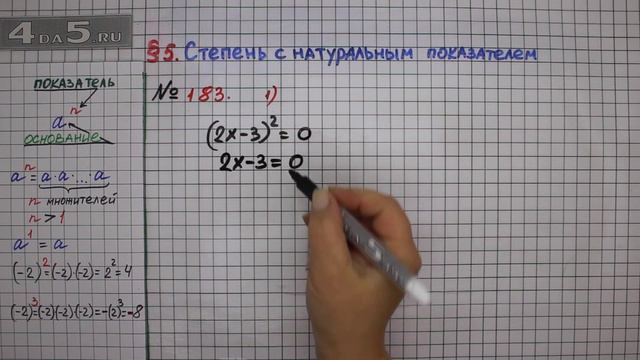 4 DA 5.RU
§5. Степень с натуральным показателем
показатель
aⁿ
основание
aⁿ = a·a·...·a
n множителей
n > 1
a¹ = a
(-2)² = (-2)·(-2) = 2² = 4
(-2)³ = (-2)(-2)(-2) = -(2)³ = -8
№ 183. 1)
(2x-3)² = 0
2x-3 = 0